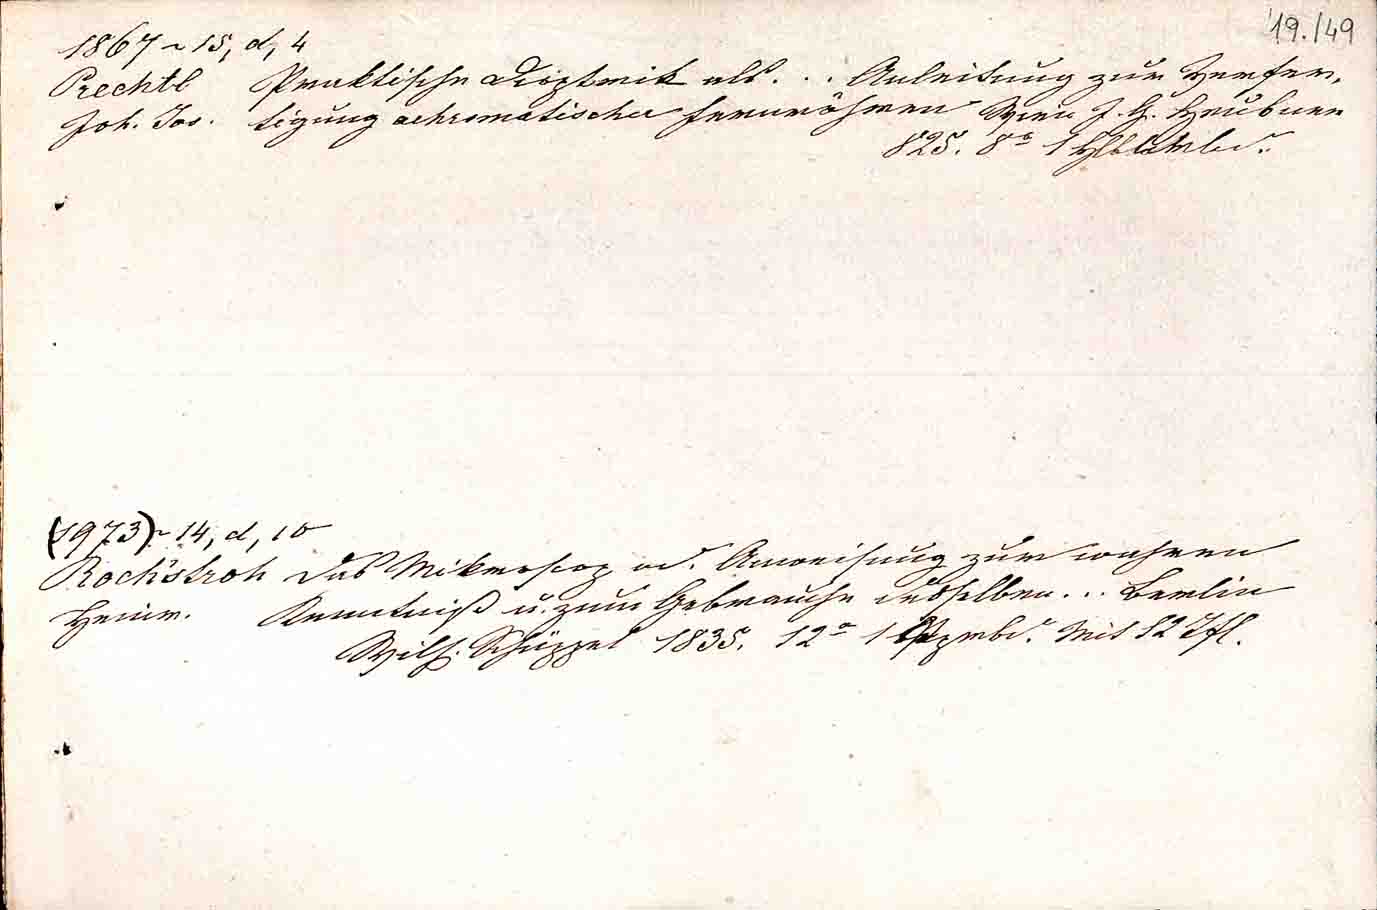 19./49
1867 ~ 15, d, 4
Prechtl Praktische Dioptrik als . . . Anleitung zur Verfer-
Joh. Jos. tigung achromatischer Fernröhren Wien J. G. Heubner
825. 8° 1
(1973) ~ 14, d, 10
Rockstroh Das Mikroscop od. Anweisung zur wahren
Heinr. Kenntniß u. zum Gebrauche desselben . . . Berlin
Wilh. Schüppel 1835. 12° 1 Pprbd. Mit 12 Tfl.